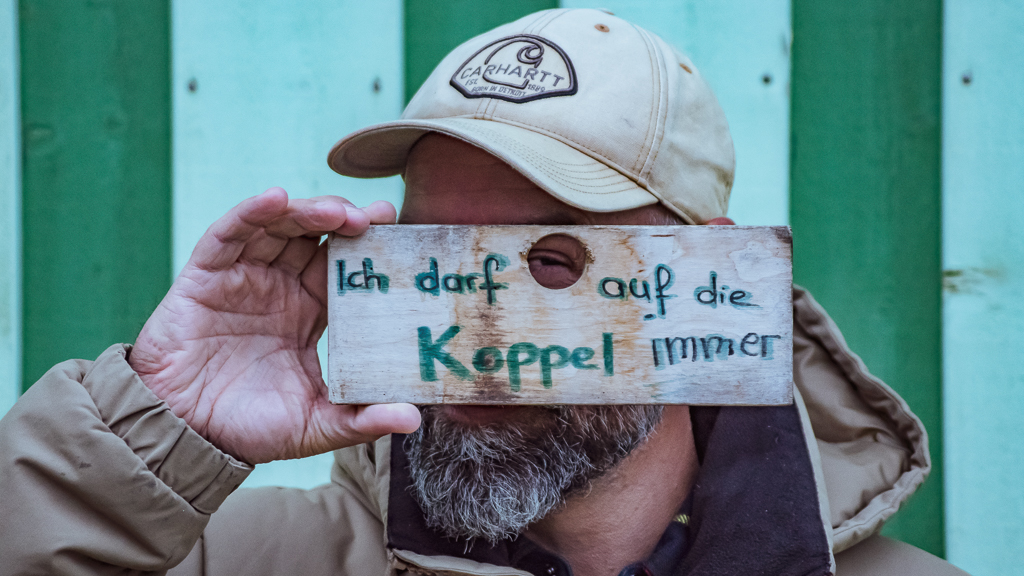 CARHARTT
EST. 1889
BORN IN DETROIT
Ich darf auf die
Koppel immer